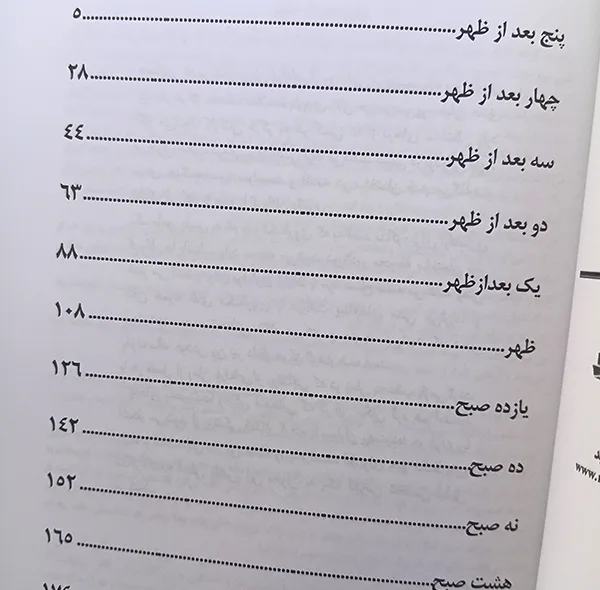 پنج بعد از ظهر..........۵
چهار بعد از ظهر..........۲۸
سه بعد از ظهر..........۴۴
دو بعد از ظهر..........۶۳
یک بعدازظهر..........۸۸
ظهر..........۱۰۸
یازده صبح..........۱۲۶
ده صبح..........۱۴۲
نه صبح..........۱۵۲
هشت صبح..........۱۶۵